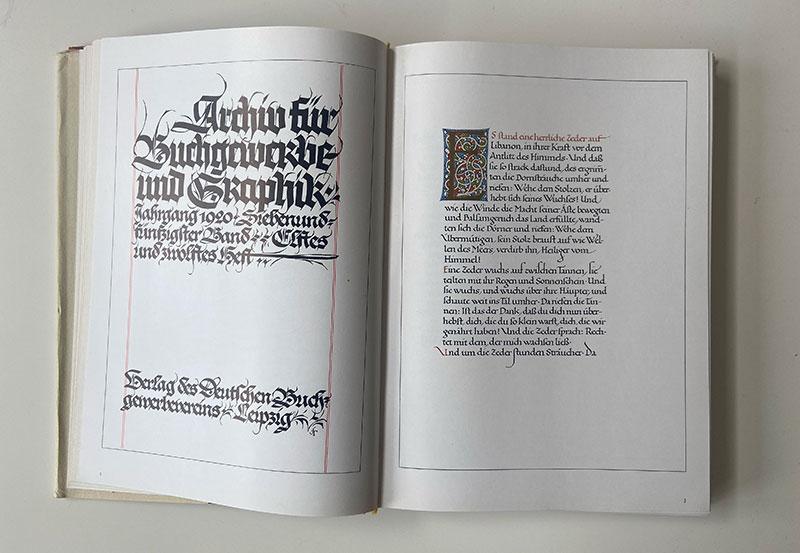 Archiv für
Buchgewerbe
und Graphik·
Jahrgang 1920· Siebenund-
fünfzigster Band· Elftes
und zwölftes Heft
Verlag des Deutschen Buch-
gewerbevereins· Leipzig
ES stand eine herrliche Zeder auf
Libanon, in ihrer Kraft vor dem
Antlitz des Himmels· Und daß
sie so strack dastund, des ergrimm-
ten die Dornsträuche umher und
riefen: Wehe dem Stolzen, er über-
hebt sich seines Wuchses! Und
wie die Winde die Macht seiner Äste bewegten
und Balsamgeruch das Land erfüllte, wand-
ten sich die Dörner und riefen: Wehe dem
Übermütigen, sein Stolz braust auf wie Wel-
len des Meers, verdirb ihn, Heiliger vom
Himmel!
Eine Zeder wuchs auf zwischen Tannen, sie
teilten mit ihr Regen und Sonnenschein· Und
sie wuchs, und wuchs über ihre Häupter, und
schaute weit ins Tal umher· Da riefen die Tan-
nen: Ist das der Dank, daß du dich nun über-
hebst, dich, die du so klein warst, dich, die wir
genährt haben! Und die Zeder sprach: Rech-
tet mit dem, der mich wachsen ließ·
Und um die Zeder stunden Sträucher· Da